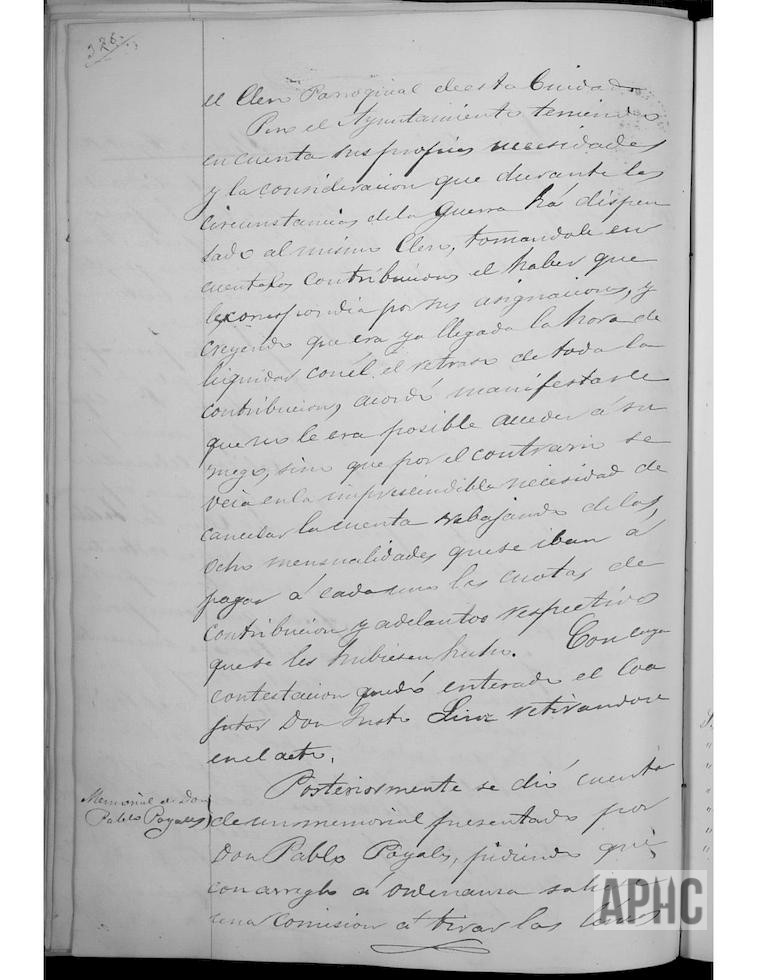 326.
el Clero Parroquial de esta Ciudad
Pero el Ayuntamiento teniendo
en cuenta sus propias necesidades
y la consideracion que durante las
circunstancias de la guerra há dispen
sado al mismo Clero, tomandole en
cuenta las contribuciones el haber que
le correspondia por sus asignaciones, y
creyendo que era ya llegada la hora de
liquidar con él el retraso de toda la
contribucion, acordó manifestarle
que no le era posible acceder á su
ruego, sino que por el contrario se
veia en la imprescindible necesidad de
cancelar la cuenta rebajando de las
ocho mensualidades que se iban á
pagar á cada uno las cuotas de
contribucion y adelantos respectivos
que se les hubiesen hecho. Con cuya
contestacion quedó enterado el Coa
jutor Don Justo retirandose
en el acto.
Posteriormente se dió cuenta
Memorial de Don
Pablo Payales
de un memorial presentado por
Don Pablo Payales, pidiendo que
con arreglo á ordenanza
una comision á tirar las
APHC